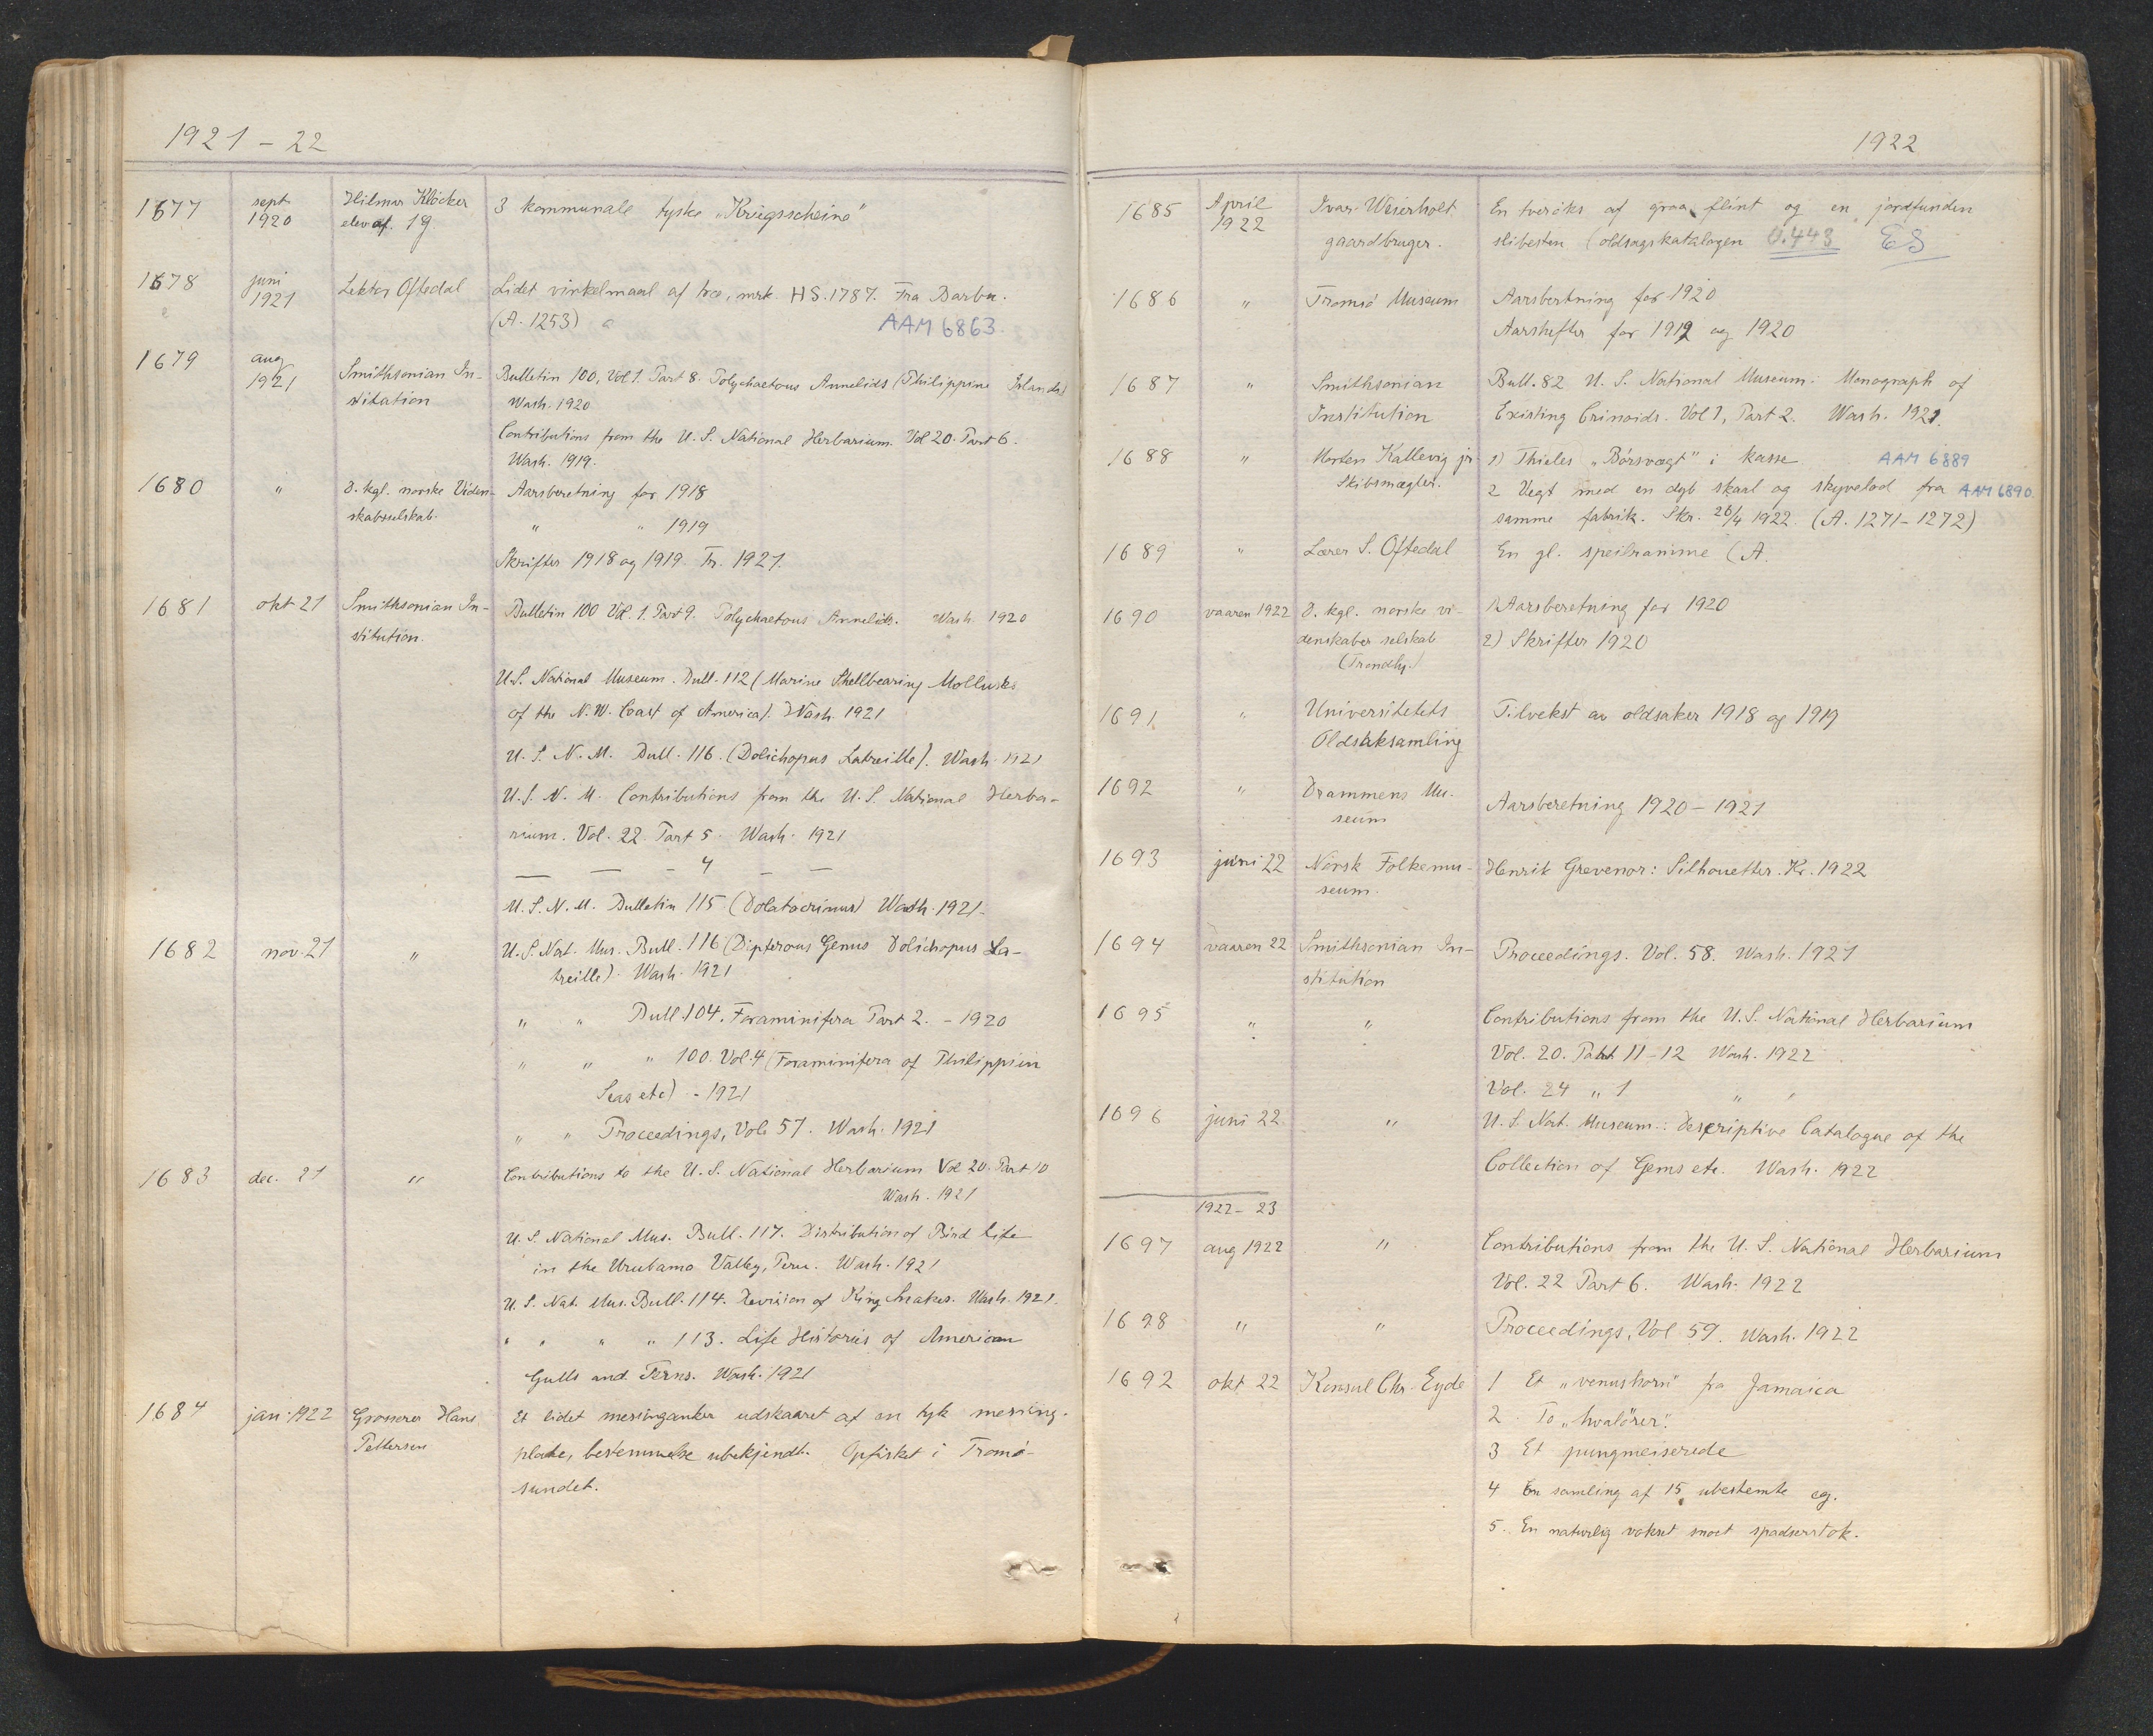 1921 – 22
1677 sept 1920 Hilmar Klöcker elev af 1g. 3 kommunale tyske „Kriegsscheine"
1678 juni 1921 Lektor Oftedal Lidet vinkelmaal af træ, mrk. HS. 1787. Fra Barbu.
(A. 1253) AAM 6863.
1679 aug 1921 Smithsonian In- Bulletin 100, Vol 1. Part 8. Polychaetous Annelids (Philippine Islands)
stitution Wash. 1920
Contributions from the U.S. National Herbarium. Vol 20. Part 6.
Wash. 1919.
1680 " D. kgl. norske Viden- Aarsberetning for 1918
skabsselskab. " " 1919
Skrifter 1918 og 1919. Tr. 1921.
1681 okt 21 Smithsonian In- Bulletin 100 Vol. 1. Part 9. Polychaetous Annelids. Wash. 1920
stitution.
U.S. National Museum. Bull. 112 (Marine Shellbearing Mollusks
of the N.W. Coast of America). Wash. 1921
U.S.N.M. Bull. 116. (Dolichopus Latreille). Wash. 1921
U.S.N.M. Contributions from the U.S. National Herba-
rium. Vol. 22. Part 5. Wash. 1921
— — – 4 – –
U.S.N.M. Bulletin 115 (Dolatocrinus) Wash. 1921.
1682 nov. 21 " U.S. Nat. Mus. Bull. 116 (Dipterous Genus Dolichopus La-
treille). Wash. 1921
" " Bull. 104. Foraminifera Part 2. – 1920
" " " 100. Vol. 4 (Foraminifera of Philippin
Seas etc) - 1921
" " Proceedings, Vol. 57. Wash. 1921
1683 dec. 21 " Contributions to the U.S. National Herbarium Vol 20. Part 10
Wash. 1921
U.S. National Mus. Bull. 117. Distribution of Bird life
in the Urubamo Valley, Peru. Wash. 1921
U.S. Nat. Mus. Bull. 114. Revision of King Snakes. Wash. 1921.
" " " " 113. Life Histories of American
Gulls and Terns. Wash. 1921
1684 jan. 1922 Grosserer Hans Et lidet messinganker udskaaret af en tyk messing-
Pettersen plate, bestemmelse ubekjendt. Opfisket i Tromö-
sundet.
1922
1685 April 1922 Ivar Weierholt En tverøks af graa flint og en jordfunden
gaardbruger. slibesten (oldsagskatalogen O.443 ES
1686 " Tromsø Museum Aarsberetning for 1920
Aarshefter for 1919 og 1920
1687 " Smithsonian Bull. 82 U.S. National Museum: Monograph of
Institution Existing Crinoids. Vol 1, Part 2. Wash. 1921.
1688 " Morten Kallevig jr 1) Thieles „Børsvægt" i kasse AAM 6889
Skibsmægler. 2 Vegt med en dyb skaal og skyvelod fra AAM 6890.
samme fabrik. Skr. 26/4 1922. (A. 1271–1272)
1689 " Lærer S. Oftedal En gl. speilramme (A.
1690 vaaren 1922 D. kgl. norske vi- 1) Aarsberetning for 1920
denskabers selskab 2) Skrifter 1920
(Trondhj.)
1691 " Universitetets Tilvekst av oldsaker 1918 og 1919
Oldsaksamling
1692 " Drammens Mu- Aarsberetning 1920 – 1921
seum
1693 juni 22 Norsk Folkemu- Henrik Grevenor: Silhouetter. Kr. 1922
seum.
1694 vaaren 22 Smithsonian In- Proceedings. Vol. 58. Wash. 1921
stitution
1695 " " Contributions from the U.S. National Herbarium
Vol. 20. Part 11–12 Wash. 1922
Vol. 24 " 1 " "
1696 juni 22 " U.S. Nat. Museum: Descriptive Catalogue of the
Collection of Gems etc. Wash. 1922
1922 – 23
1697 aug 1922 " Contributions from the U.S. National Herbarium
Vol. 22 Part 6. Wash. 1922
1698 " " Proceedings, Vol 59. Wash. 1922
1692 okt 22 Konsul Chr. Eyde 1 Et „venushorn" fra Jamaica
2. To „hvalörer".
3 Et pungmeiserede
4 En samling af 15 ubestemte eg.
5. En naturlig vokset snoet spadserstok.